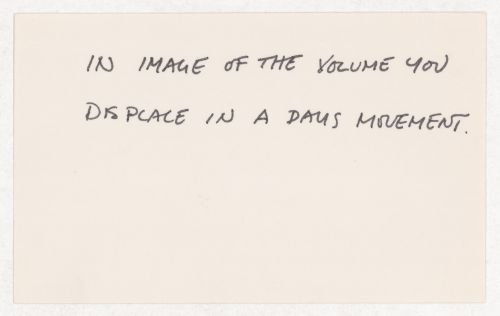 IN IMAGE OF THE VOLUME YOU
DISPLACE IN A DAYS MOVEMENT.